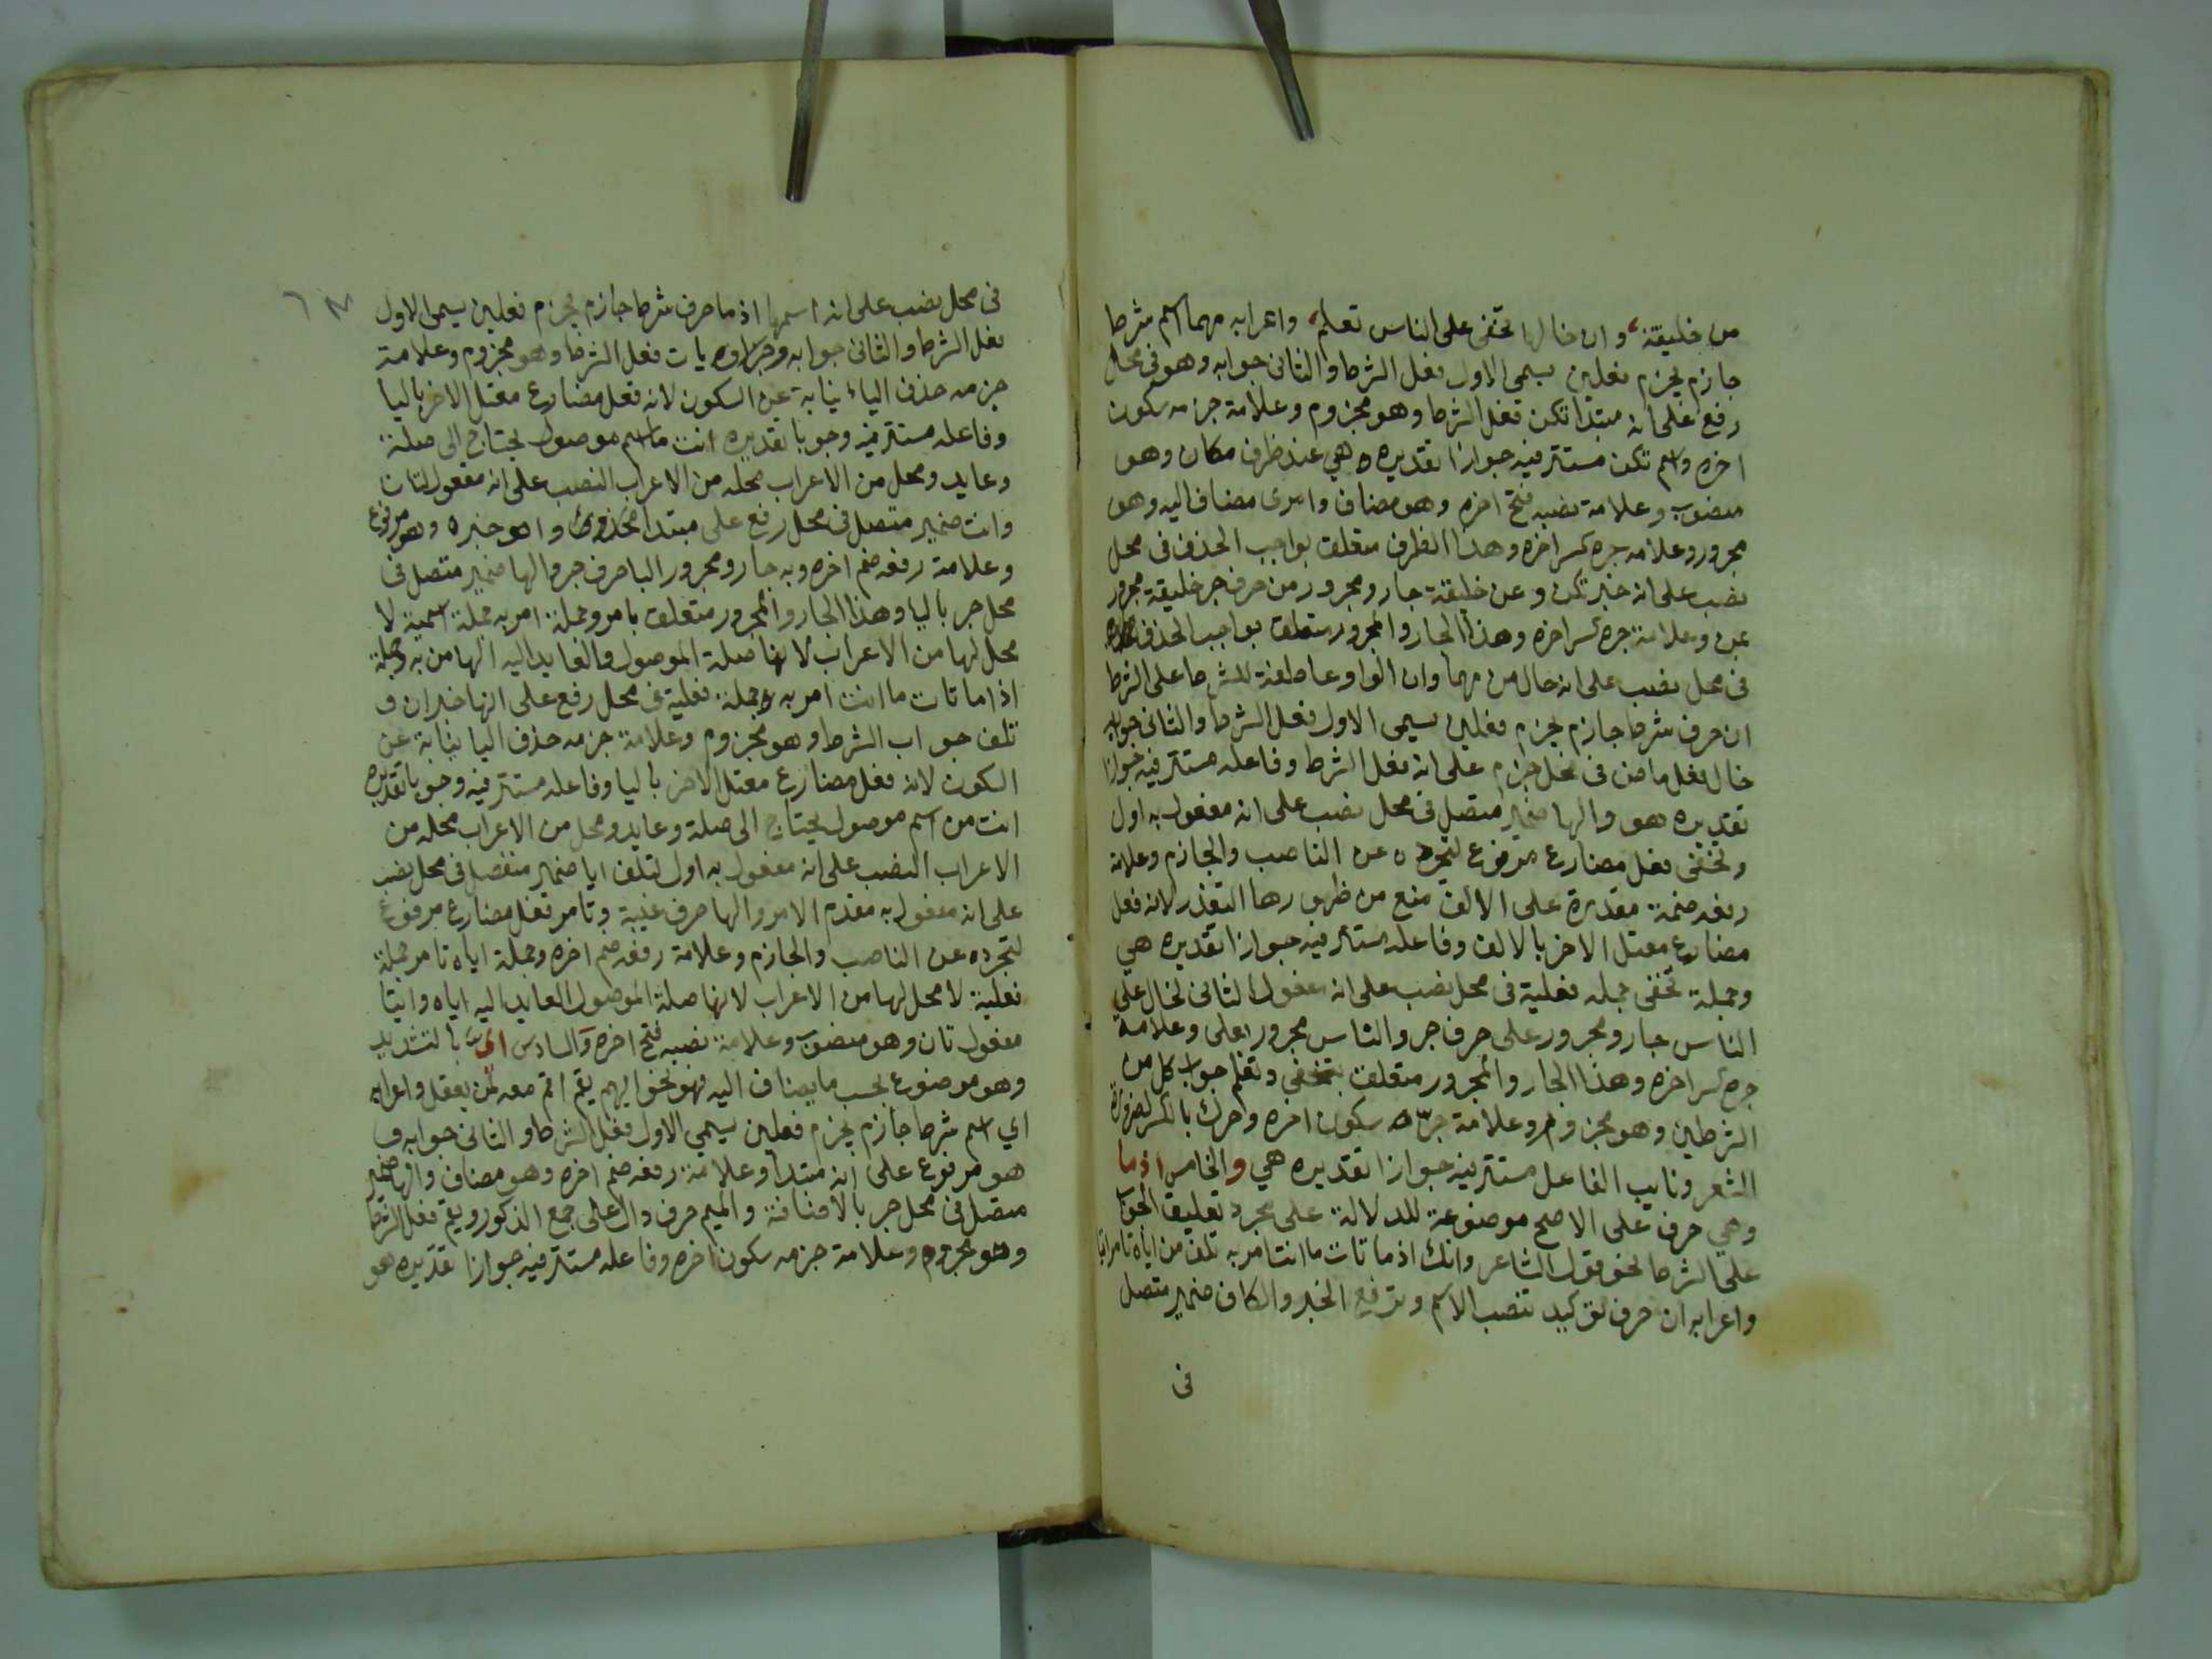 من خليقة، وان خالها تخفى على الناس تعلم، واعرابه مهما اسم شرط
جازم يجزم فعلين يسمى الاول فعل الشرط والثانى جوابه وهو فى محل
رفع على انه مبتدا تكن فعل الشرط وهو مجزوم وعلامة جزمه سكون
اخره واسم تكن مستتر فيه جوازا تقديره هي عند ظرف مكان وهو
منصوب وعلامة نصبه فتح اخره وهو مضاف وامرى مضاف اليه وهو
مجرور وعلامه جره كسر اخره وهذا الظرف متعلق بواجب الحذف فى محل
نصب على انه خبر تكن و عن خليقة جار ومجرور من حرف جر خليقة مجرور
عن وعلامة جره كسر اخره وهذا الجار والمجرور متعلق بواجب الحذف
فى محل نصب على انه حال من مهما وان الواو عاطفة للشرط على الشرط
ان حرف شرط جازم يجزم فعلين يسمى الاول فعل الشرط والثانى جوابه
خال فعل ماض فى محل جزم على انه فعل الشرط وفاعله مستتر فيه جوازا
تقديره هو والها ضمير متصل فى محل نصب على انه مفعول به اول
وتخفى فعل مضارع مرفوع لتجرده عن الناصب والجازم وعلامة
رفعه ضمة مقدرة على الالف منع من ظهورها التعذر لانه فعل
مضارع معتل الاخر بالالف وفاعله مستتر فيه جوازا تقديره هي
وجملة تخفى جمله فعلية فى محل نصب على انه مفعول الثانى لخال على
الناس جار ومجرور على حرف جر والناس مجرور بعلى وعلامة
جره كسر اخره وهذا الجار والمجرور متعلق بتخفى وتعلم جواب كل من
الشرطين وهو مجزوم وعلامة جزمه سكون اخره وحرك بالكسر لضرورة
الشعر ونايب الفاعل مستتر فيه جوازا تقديره هي والخامس اذما
وهي حرف على الاصح موضوعة للدلالة على مجرد تعليق الجواب
على الشرط نحو قول الشاعر وانك اذما تات ما انت امر به تلف من اياه تامر اتيا
واعرابه ان حرف توكيد تنصب الاسم وترفع الخبر والكاف ضمير متصل
فى
فى محل نصب على انه اسمها اذما حرف شرط جازم يجزم فعلين يسمى الاول
فعل الشرط والثانى جوابه وجزاوه يات فعل الشرط وهو مجزوم وعلامة
جزمه حذف الياء نيابة عن السكون لانه فعل مضارع معتل الاخر باليا
وفاعله مستتر فيه وجوبا تقديره انت ما اسم موصول يحتاج الى صلة
وعايد ومحل من الاعراب محله من الاعراب النصب على انه مفعول لتات
وانت ضمير متصل فى محل رفع على مبتدا وامر خبره وهو مرفوع
وعلامة رفعه ضم اخره وبه جار ومجرور البا حرف جر والها ضمير متصل فى
محل جر باليا وهذا الجار والمجرور متعلق بامر وجملة امر به جملة اسمية لا
محل لها من الاعراب لانها صلة الموصول والعايد اليه الها من به وجملة
اذا ما تات ما انت امر به جملة فعلية فى محل رفع على انها خبر ان و
تلف جواب الشرط وهو مجزوم وعلامة جزمه حذف اليا نيابة عن
السكون لانه فعل مضارع معتل الاخر باليا وفاعله مستتر فيه وجوبا تقديره
انت من اسم موصول يحتاج الى صلة وعايد ومحل من الاعراب محله من
الاعراب النصب على انه مفعول به اول لتلف ايا ضمير منفصل فى محل نصب
على انه مفعول به مقدم الامر والها حرف غيبة وتامر فعل مضارع مرفوع
لتجرده عن الناصب والجازم وعلامة رفعه ضم اخره وجملة اياه تامر جملة
فعلية لا محل لها من الاعراب لانها صلة الموصول العايد اليه اياه واتيا
مفعول ثان وهو منصوب وعلامة نصبه فتح اخره والسادس اى بالتشديد
وهو موضوع بحسب ما يضاف اليه فهو نحو ايهم يقم اقم معه لمن يعقل واعرابه
اي اسم شرط جازم يجزم فعلين يسمي الاول فعل الشرط والثانى جوابه و
هو مرفوع على انه مبتدا وعلامة رفعه ضم اخره وهو مضاف والها ضمير
متصل فى محل جر بالاضافة والميم حرف دال على جمع الذكور ويقم فعل الشرط
وهو مجزوم وعلامة جزمه سكون اخره وفاعله مستتر فيه جوازا تقديره هو